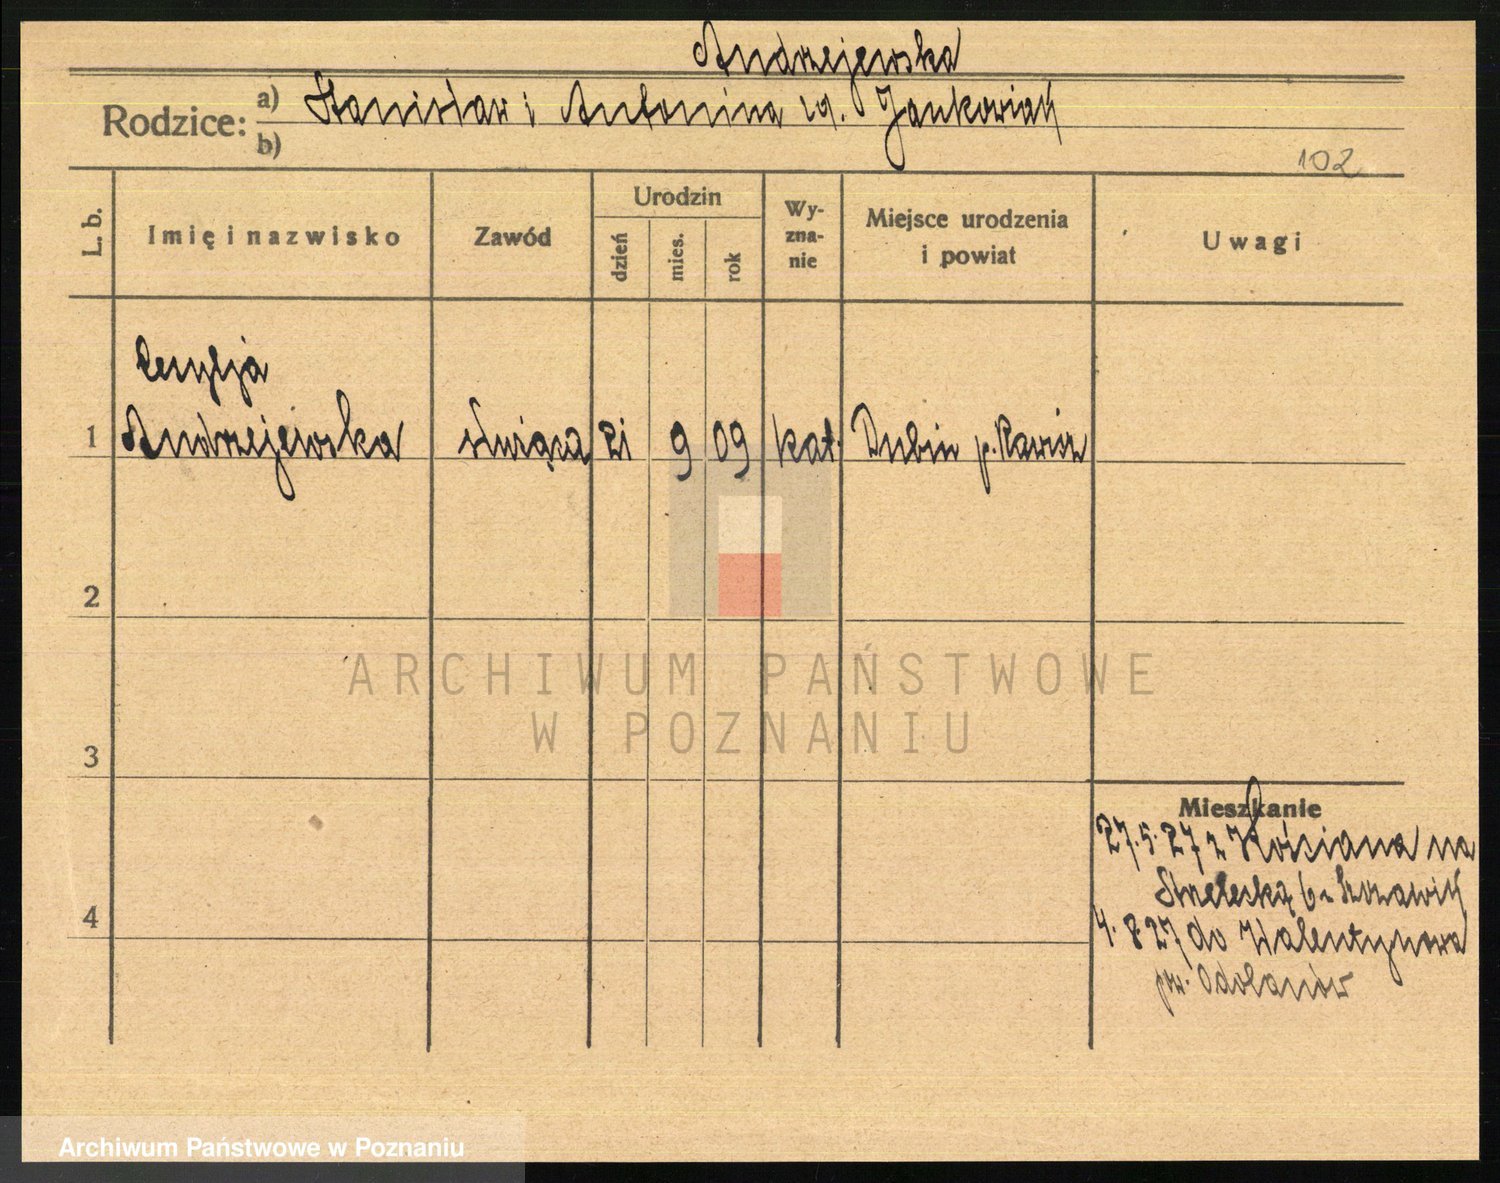 Andrzejewska
Rodzice: a) Stanisław i Antonina z d. Jankowiak
b)
102
L. b. Imię i nazwisko Zawód Urodzin dzień mies. rok Wy-zna-nie Miejsce urodzenia i powiat Uwagi
Cecylja
1 Andrzejewska służąca 21 9 09 kat. Dubin p. Rawicz
2
ARCHIWUM PAŃSTWOWE
W POZNANIU
3
Mieszkanie
27.5.27 z Kościana na
Strzelecką 6
4
4.8.27 do Walentynowa
pow. Odolanów
Archiwum Państwowe w Poznaniu